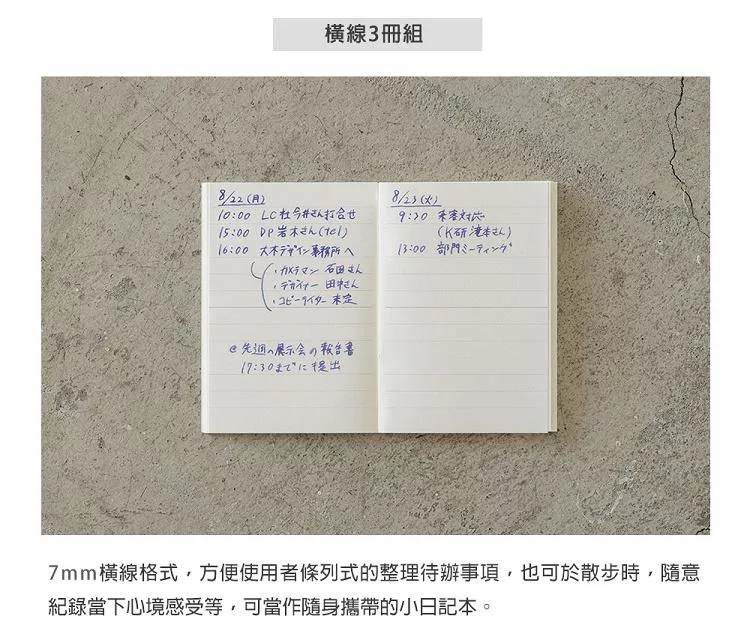 橫線3冊組
8/22(月)
10:00 LC社今井さん打合せ
15:00 DP岩木さん(tel)
16:00 大木デザイン事務所へ
・カメラマン 石田さん
・デザイナー 田中さん
・コピーライター 未定
@先週の展示会の報告書
17:30までに提出
8/23(火)
9:30 来客対応
(K研 滝本さん)
13:00 部門ミーティング
7mm橫線格式，方便使用者條列式的整理待辦事項，也可於散步時，隨意
紀錄當下心境感受等，可當作隨身攜帶的小日記本。